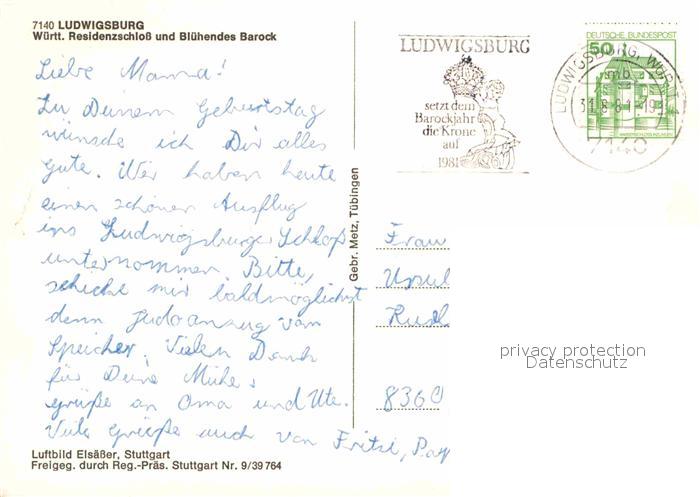 7140 LUDWIGSBURG
Württ. Residenzschloß und Blühendes Barock
Liebe Mama!
Zu Deinem Geburtstag
wünsche ich Dir alles
Gute. Wir haben heute
einen schönen Ausflug
ins Ludwigsburger Schloß
unternommen. Bitte,
schicke mir baldmöglichst
denn Judoanzug vom
Speicher. Vielen Dank
für Deine Mühe.
grüße an Oma und Ute.
Viele grüße auch von Fritzi, Pap
Luftbild Elsäßer, Stuttgart
Freigeg. durch Reg.-Präs. Stuttgart Nr. 9/39 764
Gebr. Metz, Tübingen
LUDWIGSBURG
setzt dem
Barockjahr
die Krone
auf
1981
DEUTSCHE BUNDESPOST
50
LUDWIGSBURG, WÜRTT
mb
31.8.81-19
7140
Frau
Ursul
8360
privacy protection
Datenschutz